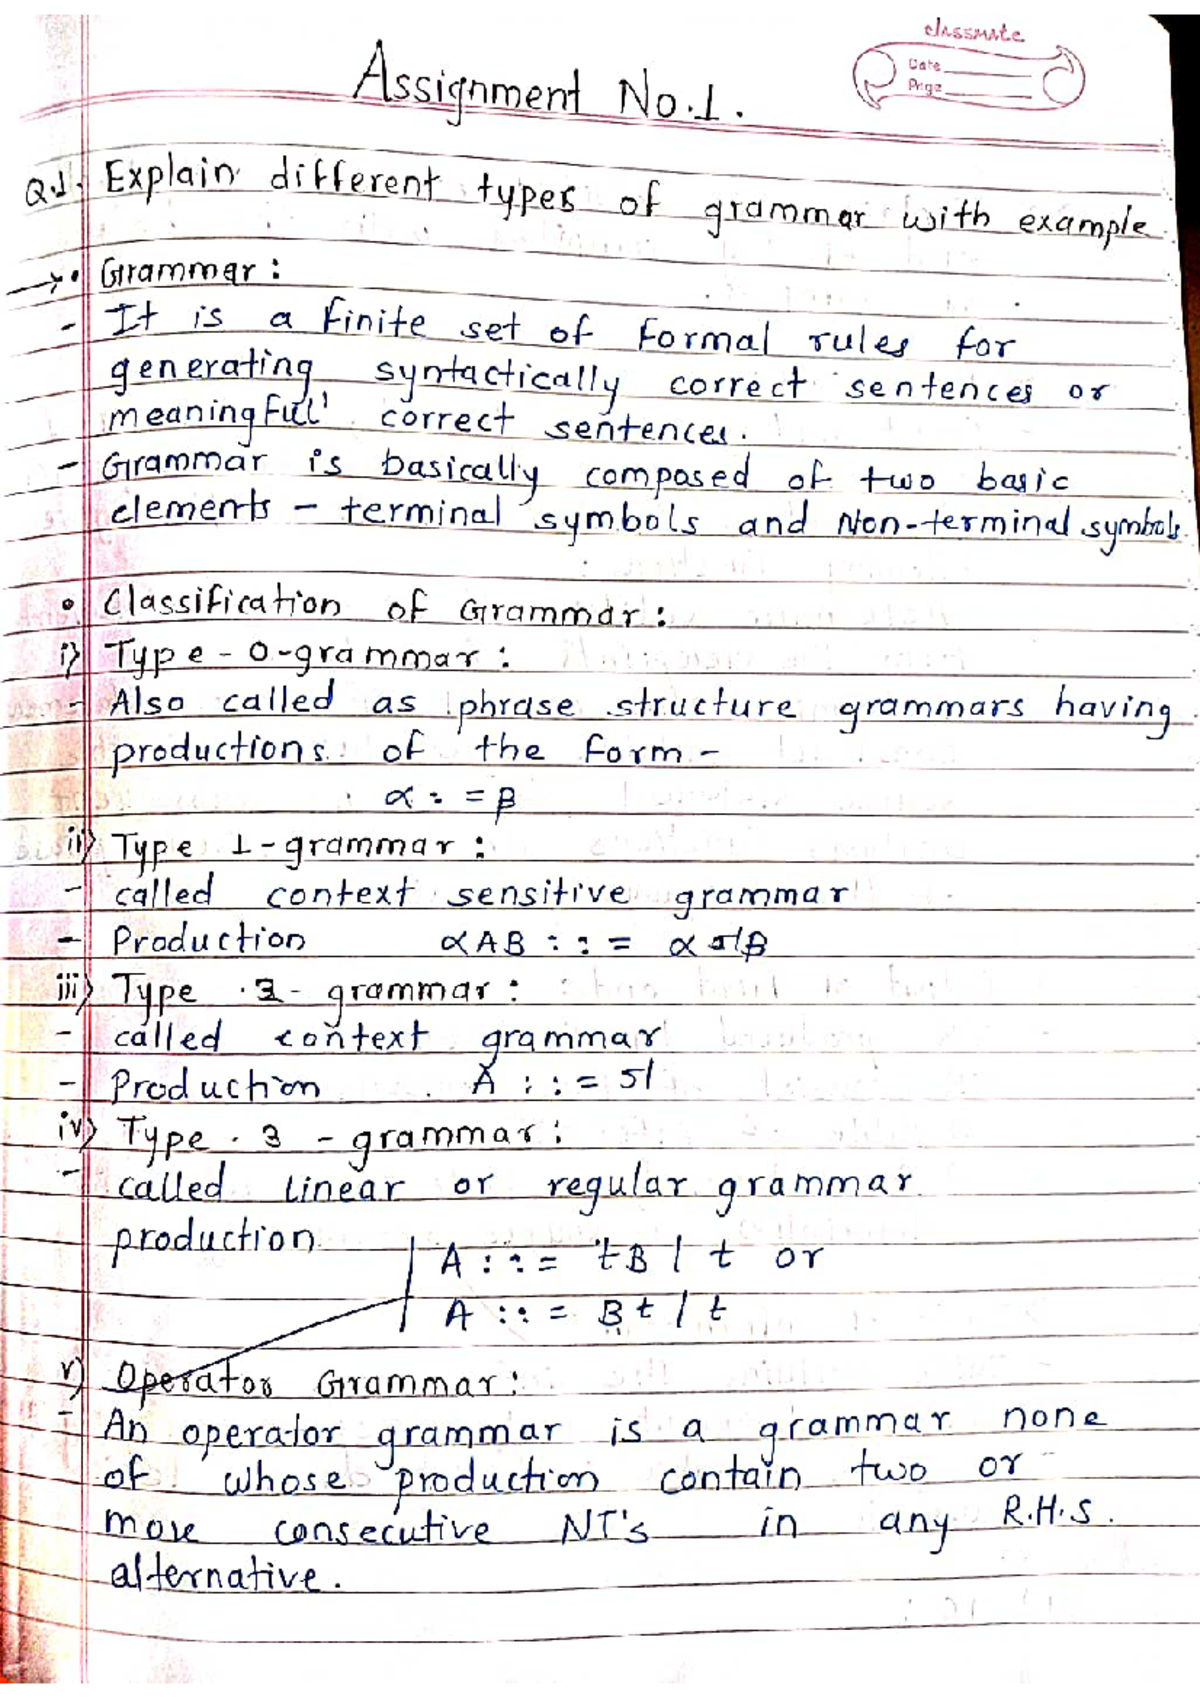 classmate
Date
Page
Assignment No.1.
Q.1. Explain different types of grammar with example.
→ • Grammar :
- It is a finite set of formal rules for
generating syntactically correct sentences or
meaningfull correct sentences.
- Grammar is basically composed of two basic
elements - terminal symbols and Non-terminal symbols.
• Classification of Grammar :
i) Type - 0 - grammar :
- Also called as phrase structure grammars having
productions of the form -
α : = β
ii) Type 1 - grammar :
- called context sensitive grammar
- Production αAB : : = α β
iii) Type - 2 - grammar :
- called context grammar
- Production A : : =
iv) Type - 3 - grammar :
- called linear or regular grammar
production
A : : = tB | t or
A : : = Bt | t
v) Operator Grammar :
- An operator grammar is a grammar none
of whose production contain two or
more consecutive NT's in any R.H.S.
alternative.